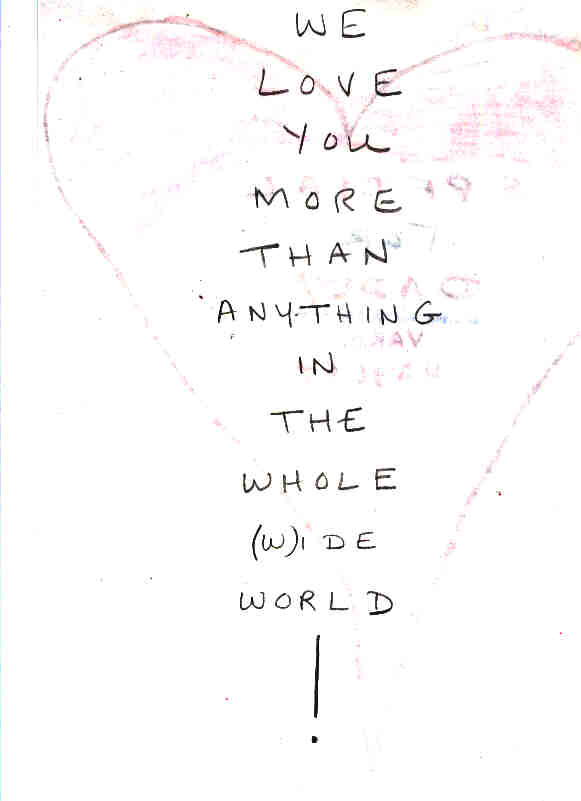 WE
LOVE
You
MORE
THAN
ANYTHING
IN
THE
WHOLE
(W)IDE
WORLD
!